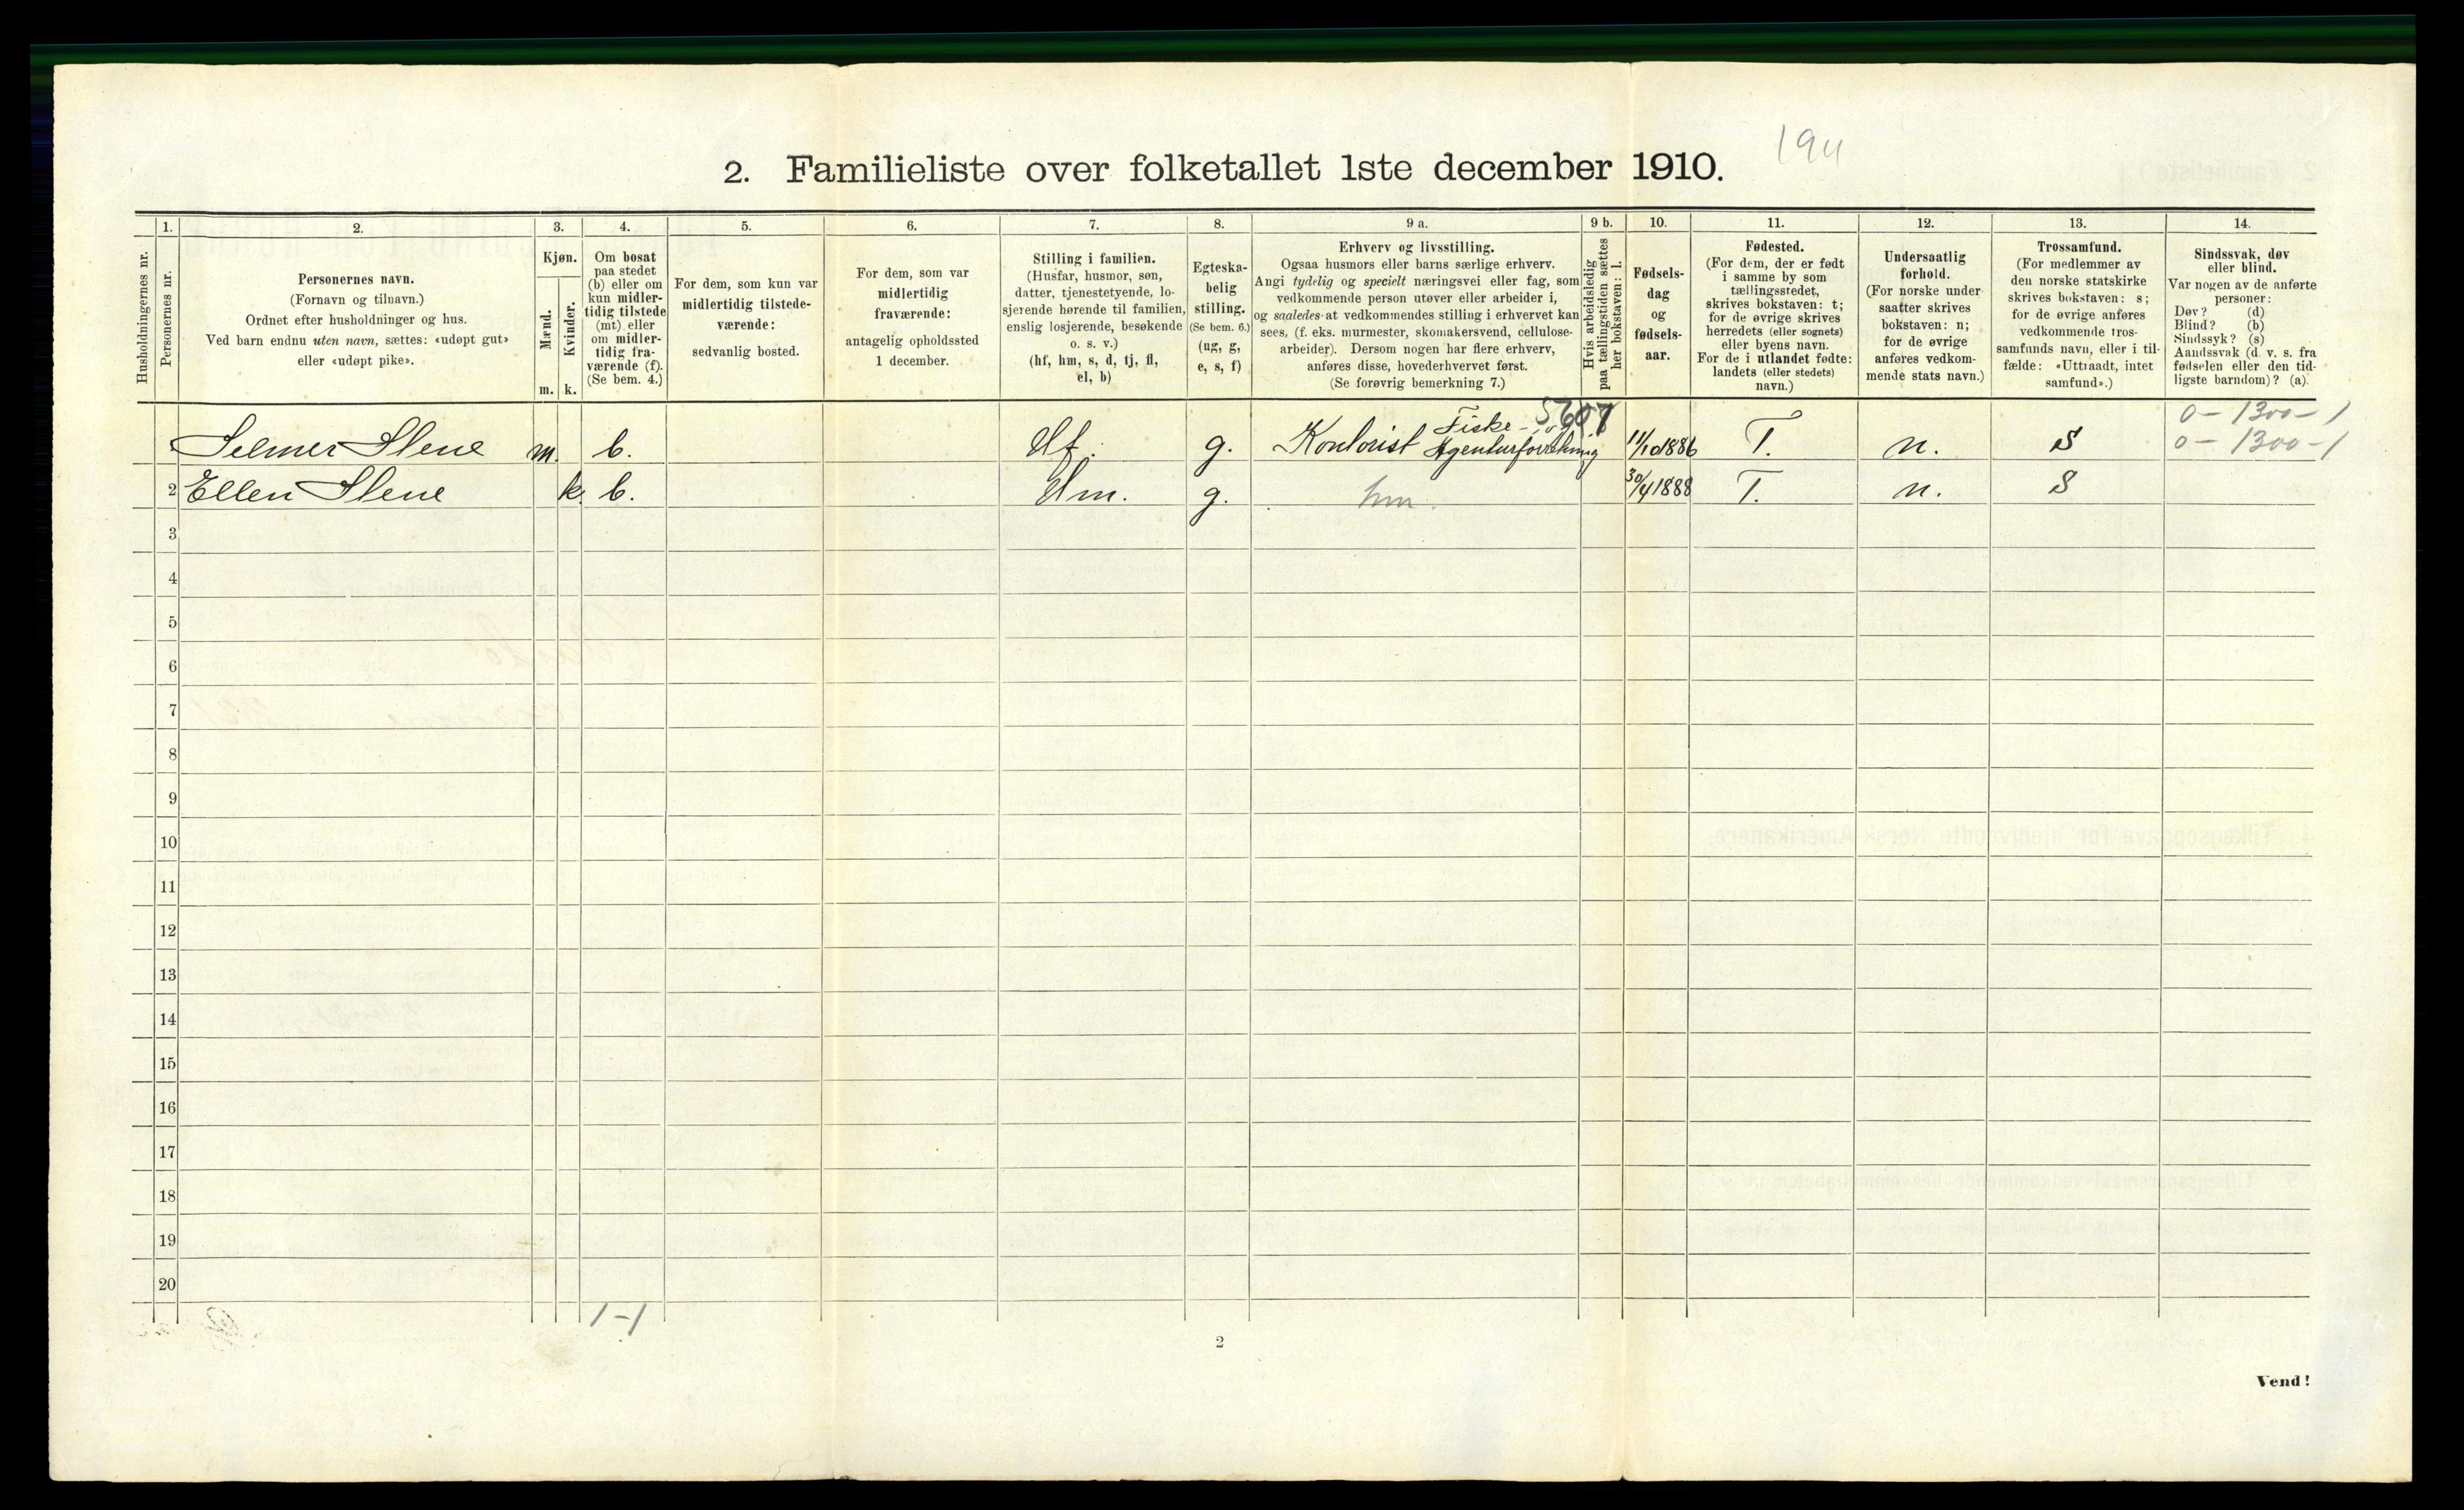 194
2. Familieliste over folketallet 1ste december 1910.
Husholdningernes nr.
1.
Personernes nr.
2.
Personernes navn.
(Fornavn og tilnavn.)
Ordnet efter husholdninger og hus.
Ved barn endnu uten navn, sættes: «udøpt gut»
eller «udøpt pike».
3.
Kjøn.
Mænd.
Kvinder.
m. k.
4.
Om bosat
paa stedet
(b) eller om
kun midler-
tidig tilstede
(mt) eller
om midler-
tidig fra-
værende (f).
(Se bem. 4.)
5.
For dem, som kun var
midlertidig tilstede-
værende:
sedvanlig bosted.
6.
For dem, som var
midlertidig
fraværende:
antagelig opholdssted
1 december.
7.
Stilling i familien.
(Husfar, husmor, søn,
datter, tjenestetyende, lo-
sjerende hørende til familien,
enslig losjerende, besøkende
o. s. v.)
(hf, hm, s, d, tj, fl,
el, b)
8.
Egteska-
belig
stilling.
(Se bem. 6.)
(ug, g,
e, s, f)
9 a.
Erhverv og livsstilling.
Ogsaa husmors eller barns særlige erhverv.
Angi tydelig og specielt næringsvei eller fag, som
vedkommende person utøver eller arbeider i,
og saaledes at vedkommendes stilling i erhvervet kan
sees, (f. eks. murmester, skomakersvend, cellulose-
arbeider). Dersom nogen har flere erhverv,
anføres disse, hovederhvervet først.
(Se forøvrig bemerkning 7.)
9 b.
Hvis arbeidsledig
paa tællingstiden sættes
her bokstaven: l.
10.
Fødsels-
dag
og
fødsels-
aar.
11.
Fødested.
(For dem, der er født
i samme by som
tællingsstedet,
skrives bokstaven: t;
for de øvrige skrives
herredets (eller sognets)
eller byens navn.
For de i utlandet fødte:
landets (eller stedets)
navn.)
12.
Undersaatlig
forhold.
(For norske under-
saatter skrives
bokstaven: n;
for de øvrige
anføres vedkom-
mende stats navn.)
13.
Trossamfund.
(For medlemmer av
den norske statskirke
skrives bokstaven: s;
for de øvrige anføres
vedkommende tros-
samfunds navn, eller i til-
fælde: «Uttraadt, intet
samfund».)
14.
Sindssvak, døv
eller blind.
Var nogen av de anførte
personer:
Døv? (d)
Blind? (b)
Sindssyk? (s)
Aandssvak (d. v. s. fra
fødselen eller den tid-
ligste barndom)? (a).
0 - 1300 - 1
1 Selmer Slene m. b. Hf. g. Kontorist Fiske- og Agenturforretning 11/10 1886 T. n. S 0 - 1300 - 1
2 Ellen Slene k. b. Hm. g. hm. 30/4 1888 T. n. S
3
4
5
6
7
8
9
10
11
12
13
14
15
16
17
18
19
20
1 - 1
2
Vend!